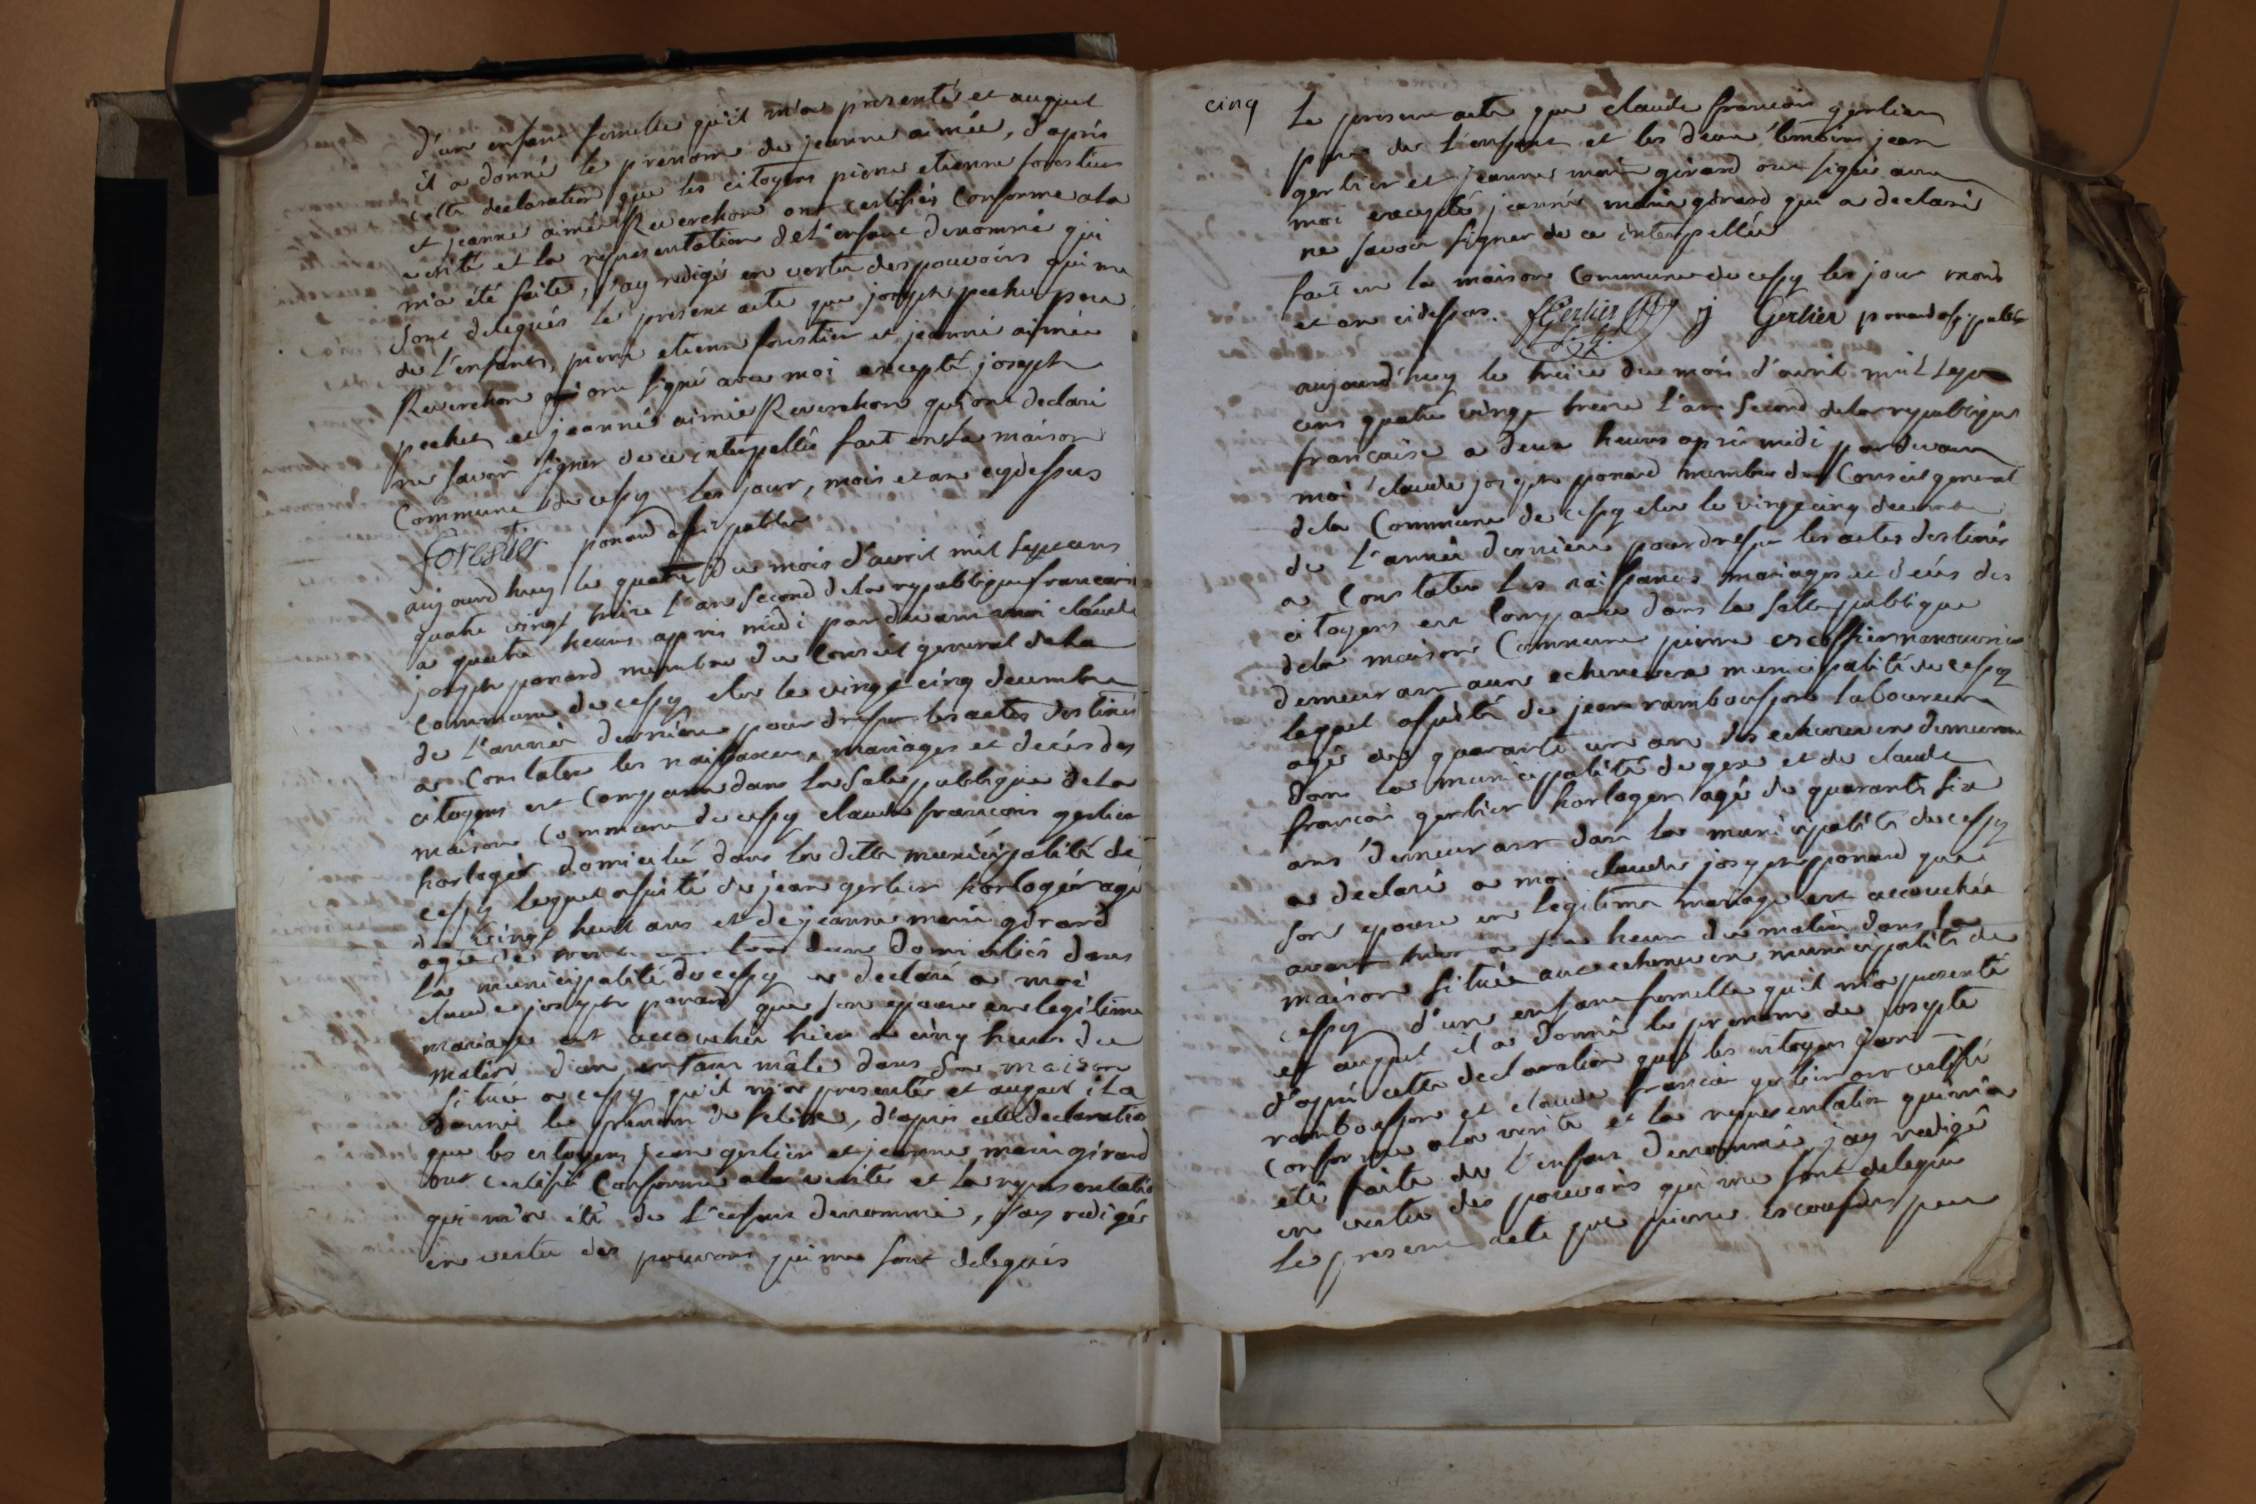 d'un enfant femelle qu'il m'a presenté et auquel
il a donné le prenom de jeanne aimée, d'après
cette declaration que les citoyens pierre etienne forestier
et jeanne aimé Reverchon ont certifiés Conforme a la
verité et la representation de L'enfant denommé qui
m'a été faite, j'ay redigé en vertu des pouvoirs qui me
sont delegués le present acte que joseph pechet pere
de L'enfant, pierre etienne forestier et jeanne aimée
Reverchon ont signé avec moi excepté joseph
pechet et jeanne aimée Reverchon qui ont declaré
ne savoir signer de ce interpellée fait en la maison
Commune de cessy les jour, mois et an cydessus
forestier ponard off. public
aujourd'huy le quatre du mois d'avril mil sept cens
quatre vingt treize l'an second de la republique francaise
a quatre heures après midi pardevant moi claude
joseph ponard membre du Conseil general de la
Commune de cessy elu le vingt cinq decembre
de L'année derniere pour dresser les actes destinés
a Constater les naissances, mariages et decés des
citoyens est Comparu dans la salle publique de la
maison Commune de cessy claude francois gerlier
horloger domicilié dans la ditte municipalité de
cessy lequel assisté de jean gerlier horloger agé
de vingt huit ans et de jeanne marie girard
agée de tous deux domiciliés dans
la municipalité de cessy a declaré a moi
claude joseph ponard que son epouse en legitime
mariage est accouchée hier a cinq heures du
matin d'un enfant mâle dans sa maison
située a cessy qu'il m'a presenté et auquel il a
donné le prenom de felix, d'après cette declaration
que les citoyens jean gerlier et jeanne marie girard
ont certifié Conforme a la verité et la representation
qui m'a été de L'enfant denommé, j'ay redigé
en vertu des pouvoirs qui me sont delegués
cinq
Le present acte que claude francois gerlier
pere de L'enfant et les deux témoins jean
gerlier et jeanne marie girard ont signé avec
moi excepté jeanne marie girard qui a declaré
ne savoir signer de ce interpellée
fait en la maison Commune de cessy les jour mois
et an cidessus. f Gerlier j Gerlier ponard off. public
aujourd'huy le treize du mois d'avril mil sept
cens quatre vingt treize l'an second de la republique
française a deux heures après midi pardevant
moi claude joseph ponard membre du Conseil general
de la Commune de cessy elu le vingt cinq decembre
de L'année derniere pour dresser les actes destinés
a Constater les naissances mariages et decés des
citoyens est Comparu dans la salle publique
de la maison Commune pierre escoffier manouvrier
demeurant aux echenevex municipalité de cessy
lequel assisté de jean rambosson laboureur
agé de quarante un an des echenevex demeurant
dans la municipalité de gex et de claude
francois gerlier horloger agé de quarante six
ans demeurant dans la municipalité de cessy
a declaré a moi claude joseph ponard que
son epouse en legitime mariage est accouchée
avant hier a six heures du matin dans la
maison située aux echenevex municipalité de
cessy d'un enfant femelle qu'il m'a presenté
et auquel il a donné le prenom de josepte
d'après cette declaration que les citoyens jean
rambosson et claude francois gerlier ont certifié
Conforme a la verité et la representation qui m'a
été faite de l'enfant denommé, j'ay redigé
en vertu des pouvoirs qui me sont delegués
Le present acte que pierre escoffier pere